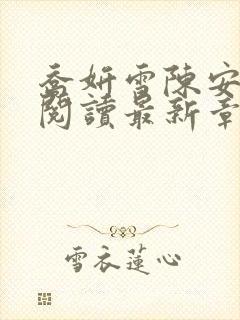 喬妍雪陳安
閱讀最新章
雪衣蓮心